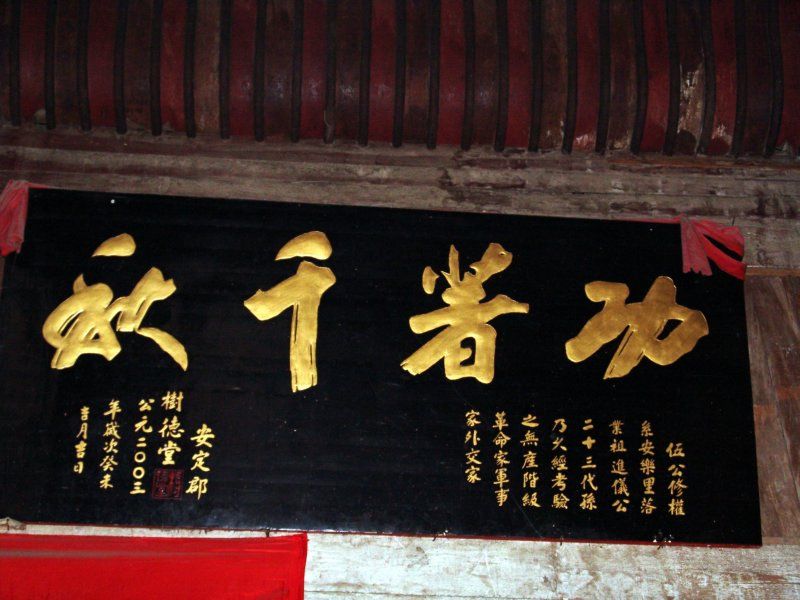 功著千秋
伍公修權
系安樂里落
業祖進儀公
二十三代孫
乃久經考驗
之無產階級
革命家軍事
家外交家
安定郡
樹德堂
公元二〇〇三
年歲次癸未
吉月吉日